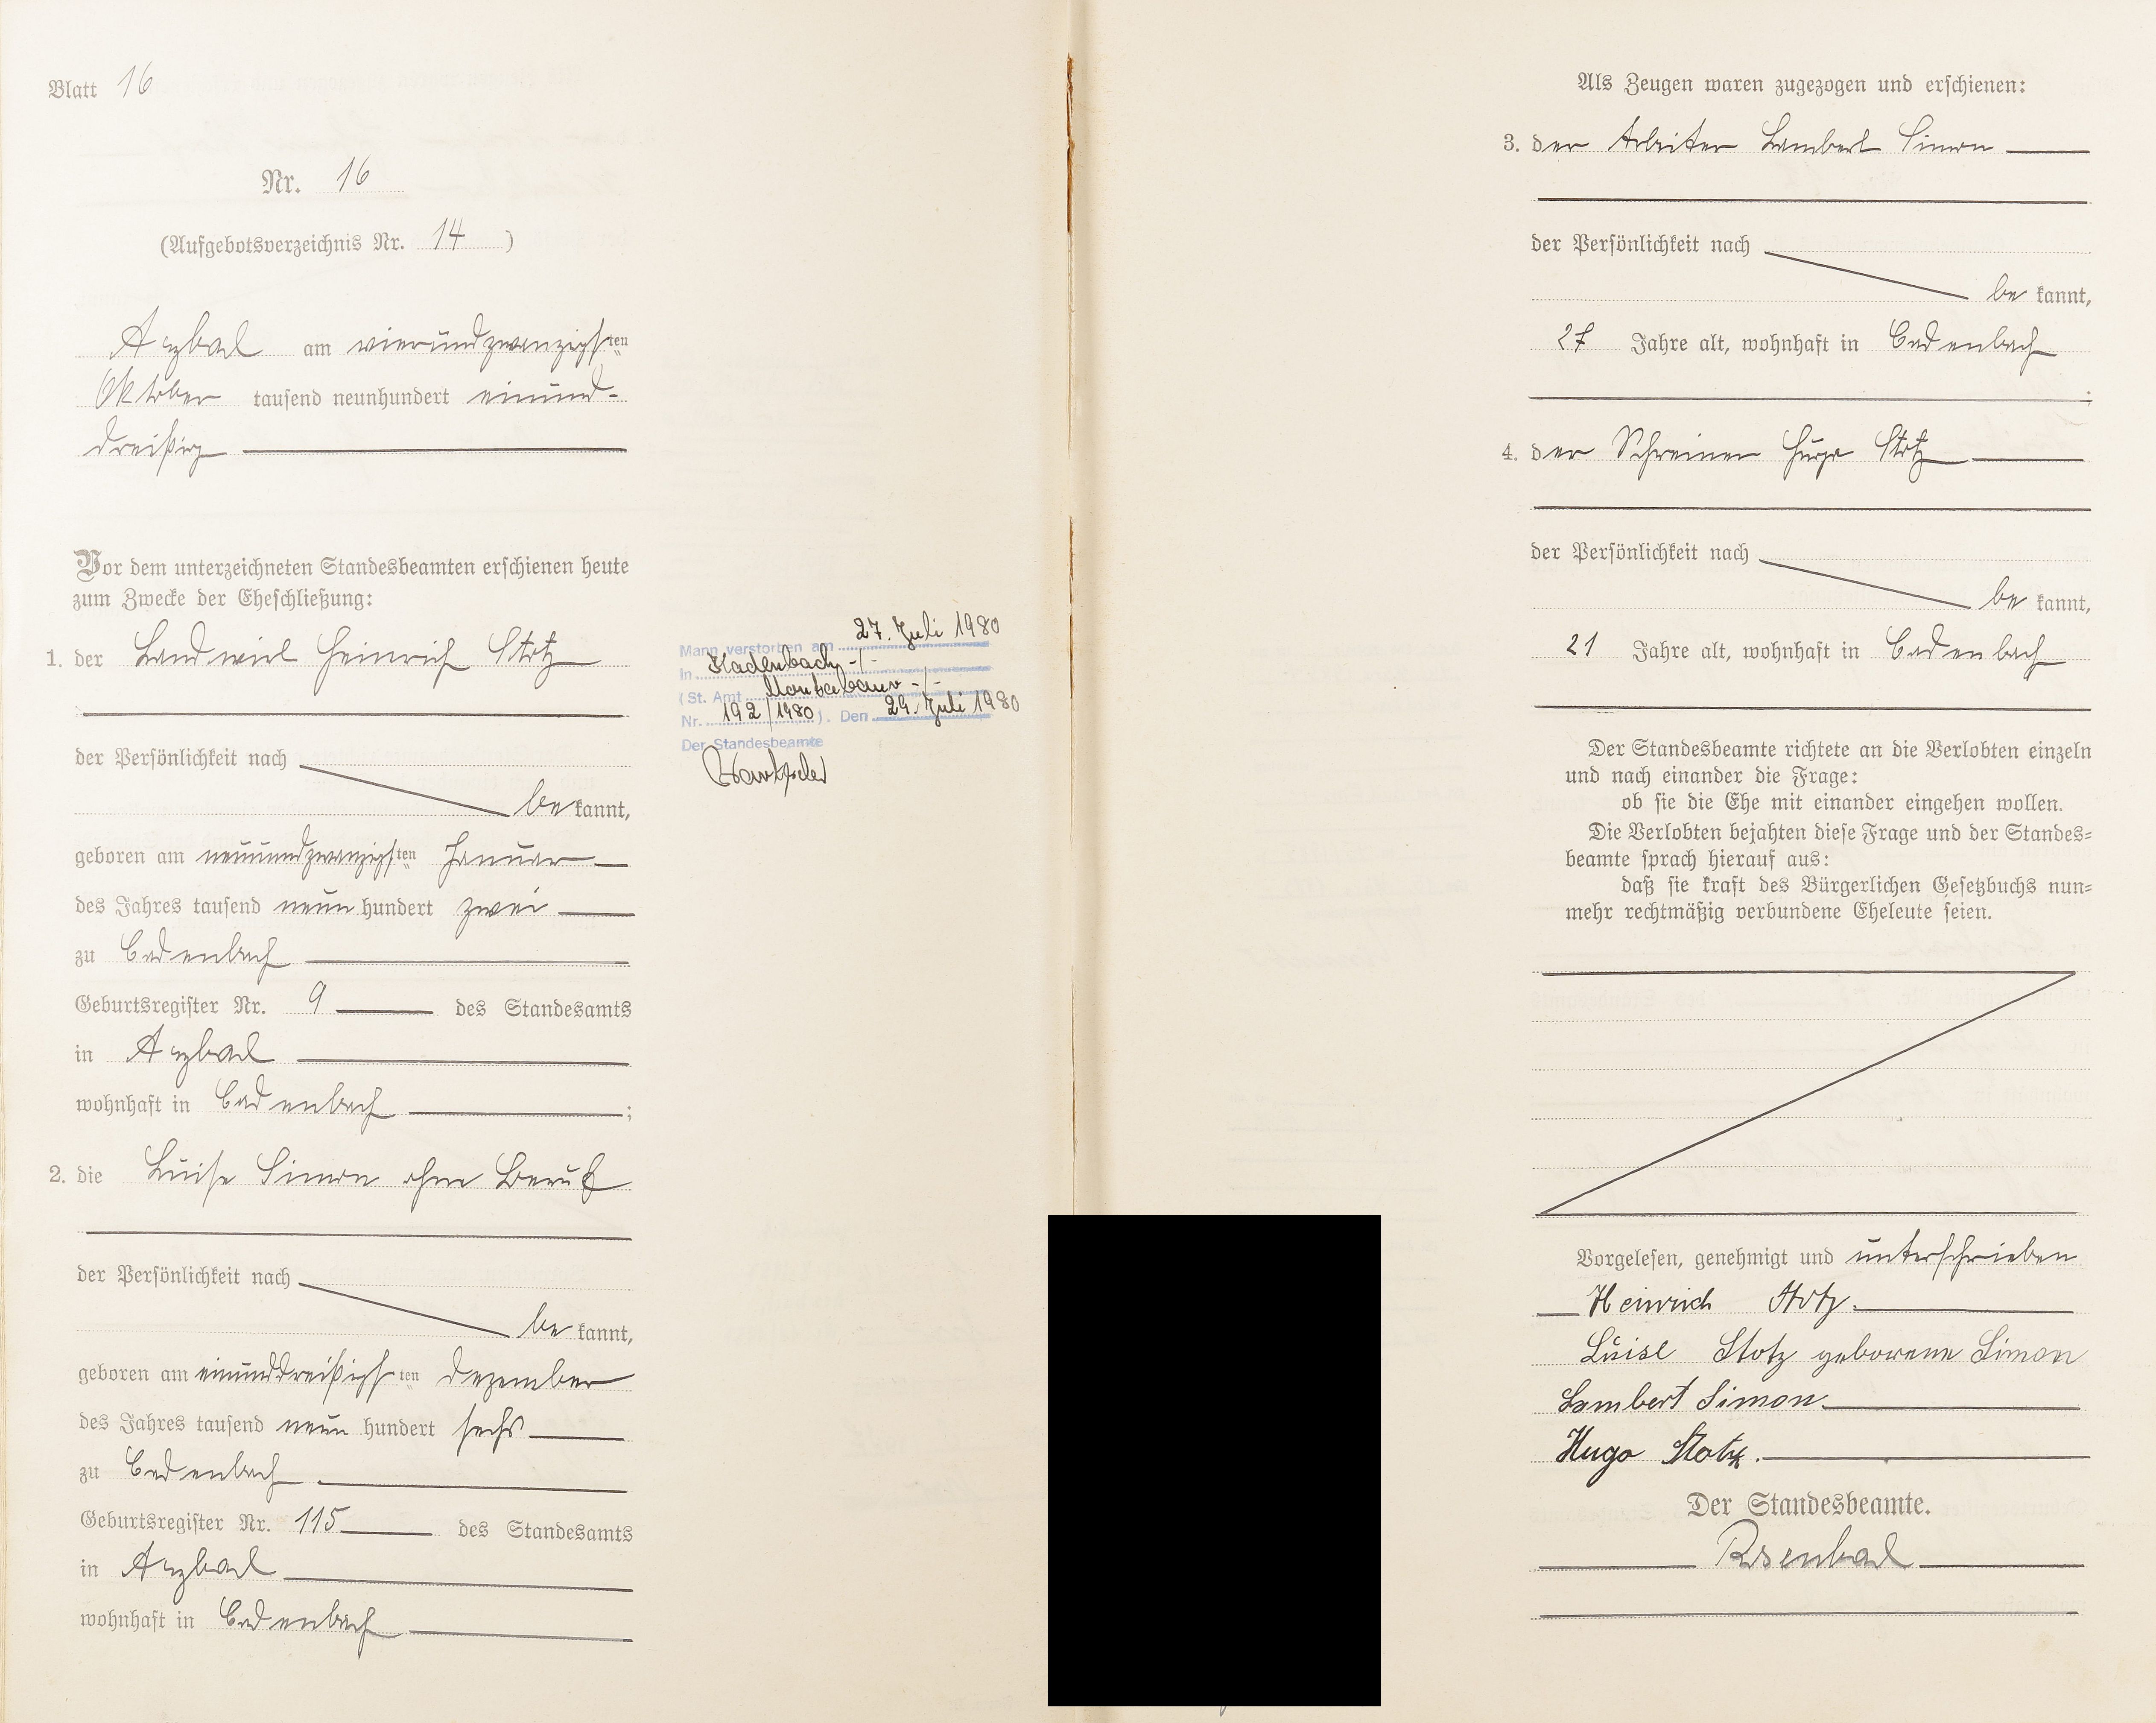 Blatt 16
Nr. 16
(Aufgebotsverzeichnis Nr. 14)
Arzbach am vierundzwanzigsten
Oktober tausend neunhundert einund-
dreißig
Vor dem unterzeichneten Standesbeamten erschienen heute
zum Zwecke der Eheschließung:
1. der Landwirt Heinrich Stotz
der Persönlichkeit nach
be kannt,
geboren am neunundzwanzigsten Januar
des Jahres tausend neun hundert zwei
zu Cadenbach
Geburtsregister Nr. 9 des Standesamts
in Arzbach
wohnhaft in Cadenbach ;
2. die Luise Simon ohne Beruf
der Persönlichkeit nach
be kannt,
geboren am einunddreißigsten Dezember
des Jahres tausend neun hundert sechs
zu Cadenbach
Geburtsregister Nr. 115 des Standesamts
in Arzbach
wohnhaft in Cadenbach
Mann verstorben am 27. Juli 1980
in Kadenbach -/-
(St. Amt Montabaur -/-
Nr. 192/1980). Den 29. Juli 1980
Der Standesbeamte
Als Zeugen waren zugezogen und erschienen:
3. der Arbeiter Lambert Simon
der Persönlichkeit nach
be kannt,
27 Jahre alt, wohnhaft in Cadenbach
;
4. der Schreiner Hugo Stotz
der Persönlichkeit nach
be kannt,
21 Jahre alt, wohnhaft in Cadenbach
Der Standesbeamte richtete an die Verlobten einzeln
und nach einander die Frage:
ob sie die Ehe mit einander eingehen wollen.
Die Verlobten bejahten diese Frage und der Standes-
beamte sprach hierauf aus:
daß sie kraft des Bürgerlichen Gesetzbuchs nun-
mehr rechtmäßig verbundene Eheleute seien.
Vorgelesen, genehmigt und unterschrieben
Heinrich Stotz.
Luise Stotz geborene Simon
Lambert Simon
Hugo Stotz.
Der Standesbeamte.